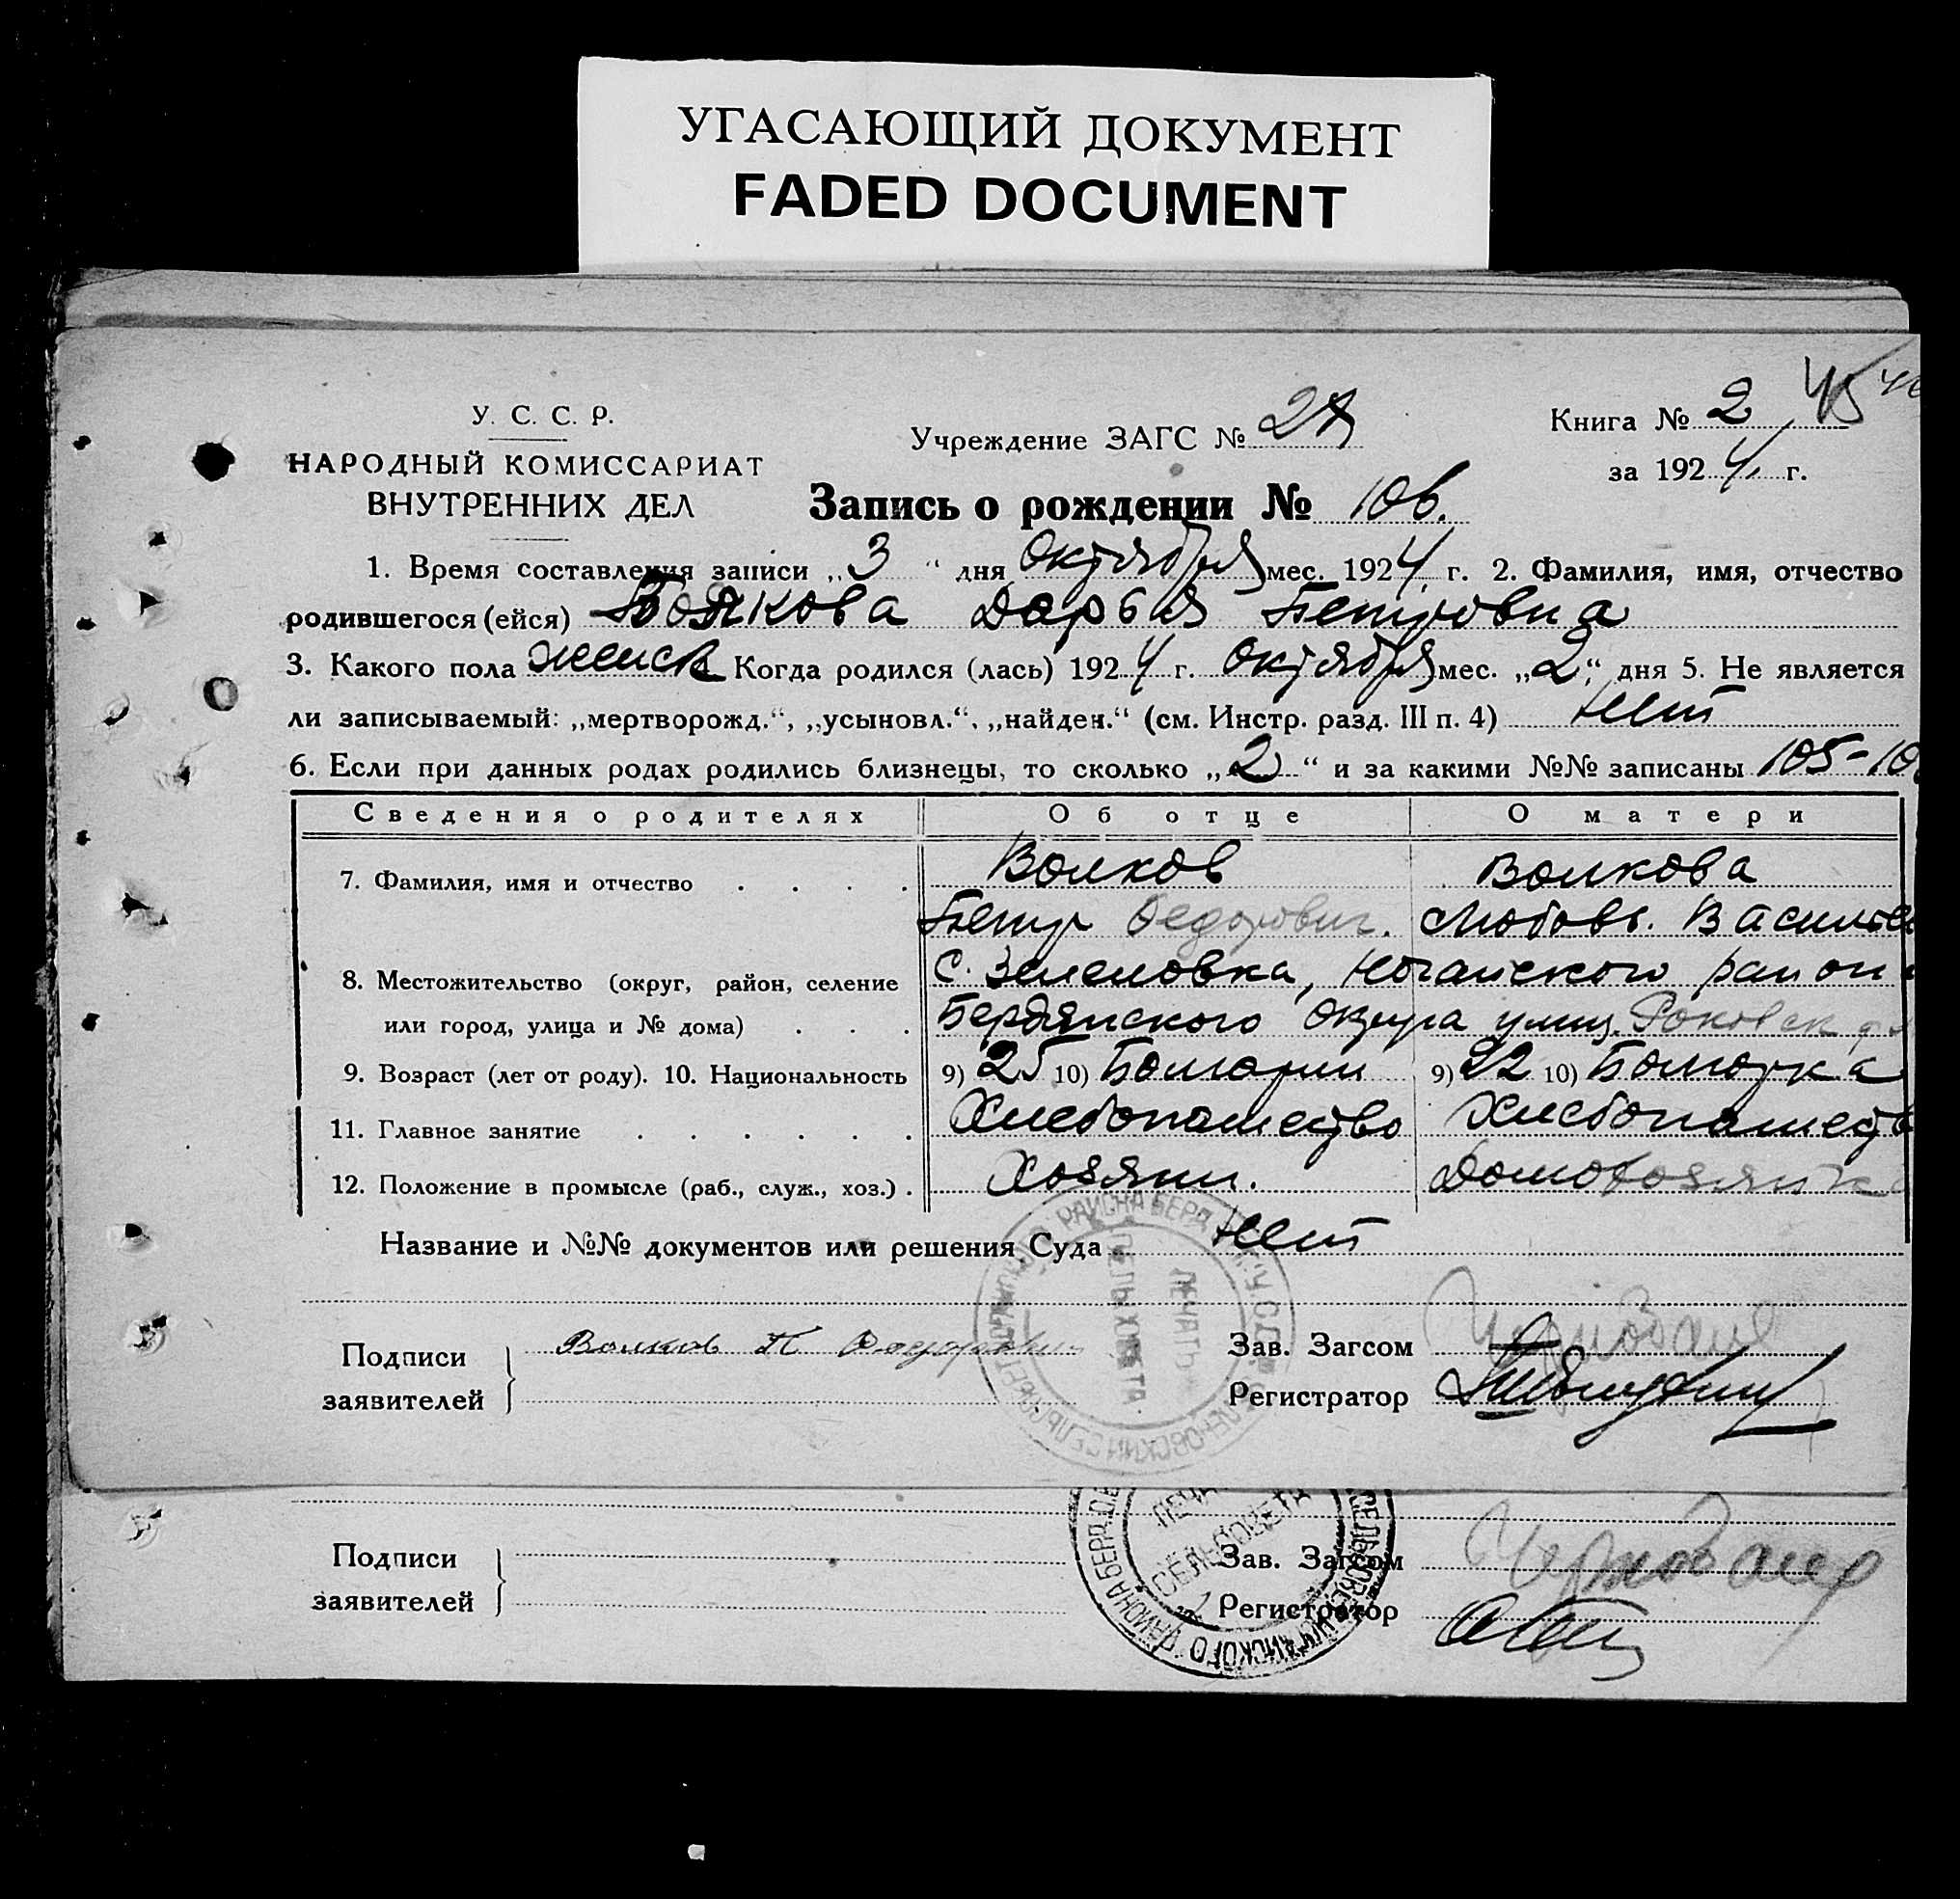 УГАСАЮЩИЙ ДОКУМЕНТ
FADED DOCUMENT
У. С. С. Р.
НАРОДНЫЙ КОМИССАРИАТ
ВНУТРЕННИХ ДЕЛ
Учреждение ЗАГС №
Книга № 2 45
за 1924 г.
Запись о рождении № 106.
1. Время составления записи „3“ дня Октября мес. 1924 г. 2. Фамилия, имя, отчество
родившегося (ейся) Волкова Дарья Петровна
3. Какого пола женск Когда родился (лась) 1924 г. Октября мес. „2“ дня 5. Не является
ли записываемый: „мертворожд.“, „усыновл.“, „найден.“ (см. Инстр. разд. III п. 4) Нет
6. Если при данных родах родились близнецы, то сколько „2“ и за какими №№ записаны 105-10
Сведения о родителях Об отце О матери
7. Фамилия, имя и отчество . . . . Волков Волкова
Петр Федорович. Любовь. Василье
8. Местожительство (округ, район, селение С. Зеленовка, Ногайского район
или город, улица и № дома) . . . Бердянского Округа улиц.
9. Возраст (лет от роду). 10. Национальность 9) 25 10) Болгарин 9) 22 10) Болгарка
11. Главное занятие . . . . . . Хлебопашество Хлебопашеств
12. Положение в промысле (раб., служ., хоз.) . Хозяин. Домохозяйка
Название и №№ документов или решения Суда Нет
Подписи
заявителей
Волков П Федорович
Зав. Загсом
Регистратор
ПЕЧАТЬ
СЕЛЬСОВЕТА
Подписи
заявителей
Зав. Загсом
Регистратор